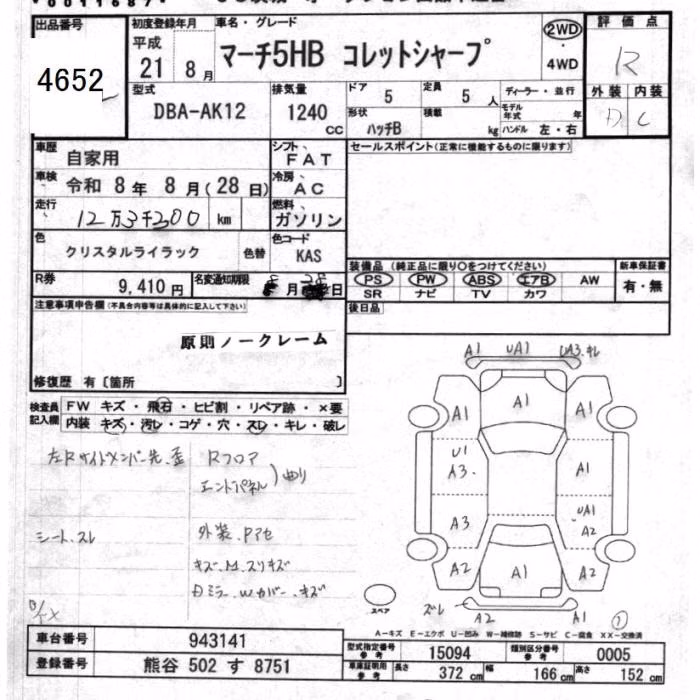 出品番号
4652
初度登録年月
平成
21 8月
車名・グレード
マーチ5HB コレットシャープ
2WD
・
4WD
評価点
R
外装 内装
D C
型式
DBA-AK12
排気量
1240
CC
ドア
5
定員
5 人
ディーラー・並行
モデル年式 年
形状
ハッチB
積載
kg
ハンドル 左・右
車歴
自家用
シフト
FAT
セールスポイント(正常に機能するものに限ります)
車検
令和 8年 8月(28日)
冷房
AC
走行
12万3千200 km
燃料
ガソリン
色
クリスタルライラック
色替
色コード
KAS
R券
9,410円
名変通知期限
月 日
装備品 (純正品に限り○をつけてください)
PS PW ABS エアB AW
SR ナビ TV カワ
新車保証書
有・無
後日品
注意事項申告欄(不具合内容等は具体的に記入して下さい)
原則ノークレーム
修復歴 有〔箇所 〕
検査員
記入欄
FW キズ・飛石・ヒビ割・リペア跡・×要
内装 キズ・汚レ・コゲ・穴・スレ・キレ・破レ
左Rサイドメンバー先.歪
Rフロア
エンドパネル)曲り
シート.スレ
外装.Pアセ
キズ.M.スリキズ
Dミラ-.Wカバー.キズ
A1 UA1 UA3.キレ
A1 A1 A1
U1
A3.
A1
A3
UA1
A2
A2 A1 A2
ズレ A2 A1
スペア
A-キズ E-エクボ U-凹み W-補修跡 S-サビ C-腐食 XX-交換済
車台番号
943141
登録番号
熊谷 502 す 8751
型式指定番号
参考
15094
類別区分番号
参考
0005
車庫証明用
参考
長さ
372 cm
幅
166 cm
高さ
152 cm